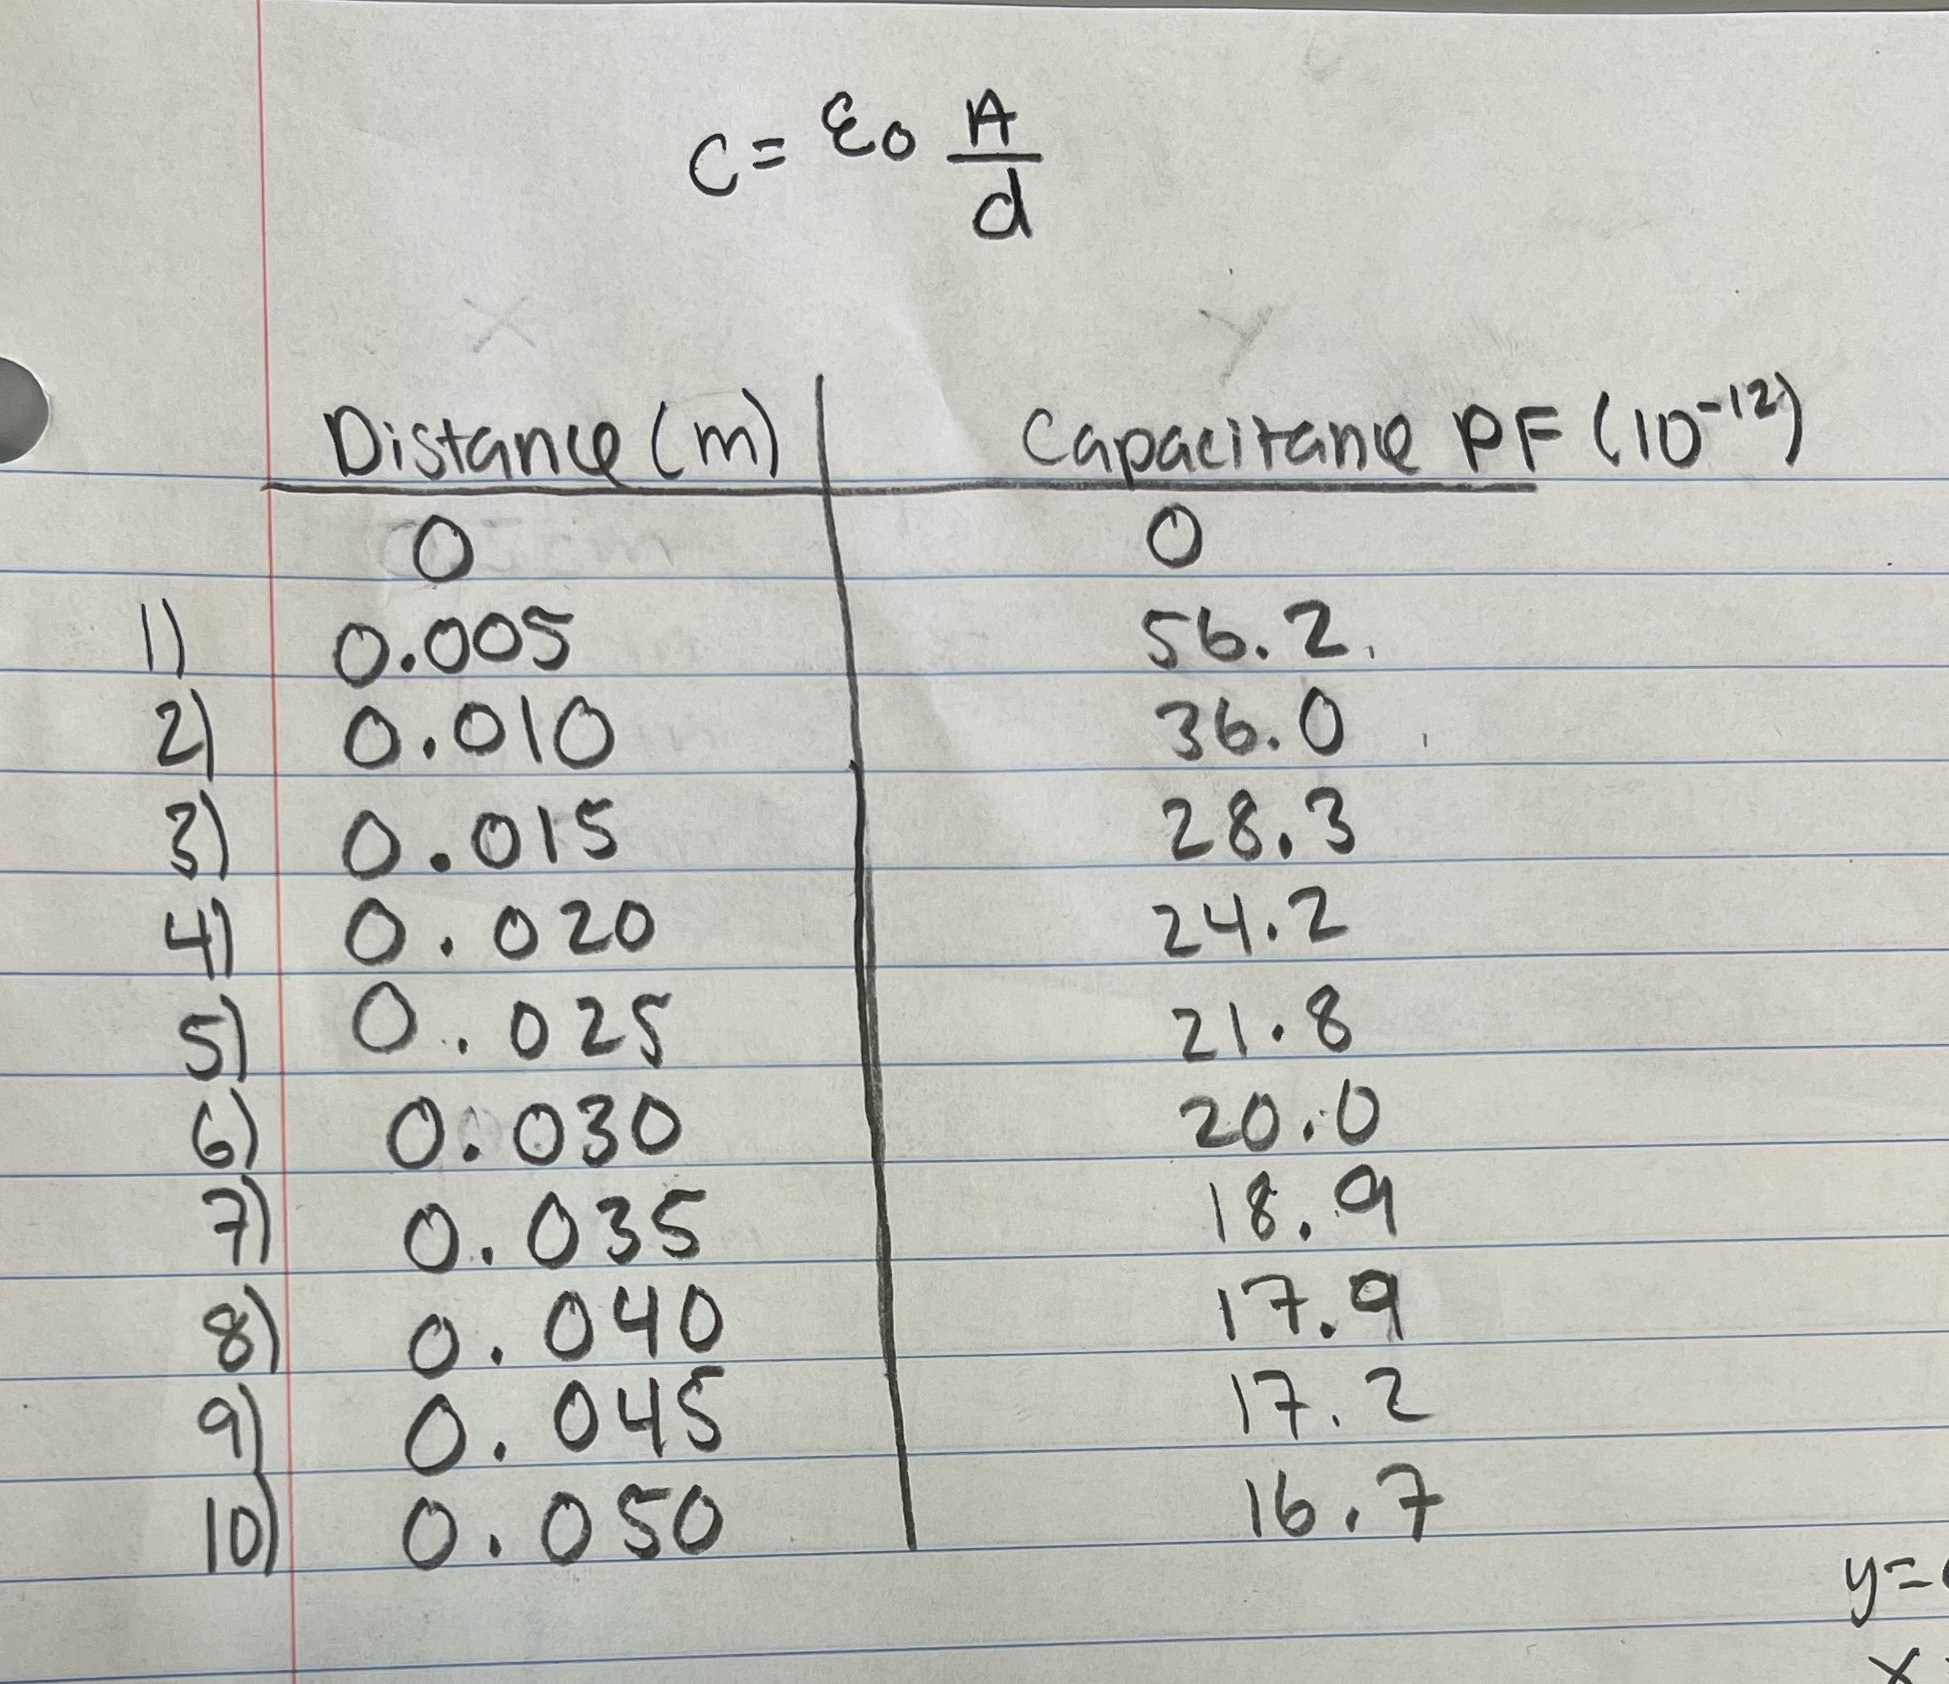 C = ε0 A/d
X Y
Distance (m) Capacitance PF (10^-12)
0 0
1) 0.005 56.2
2) 0.010 36.0
3) 0.015 28.3
4) 0.020 24.2
5) 0.025 21.8
6) 0.030 20.0
7) 0.035 18.9
8) 0.040 17.9
9) 0.045 17.2
10) 0.050 16.7
y=
x